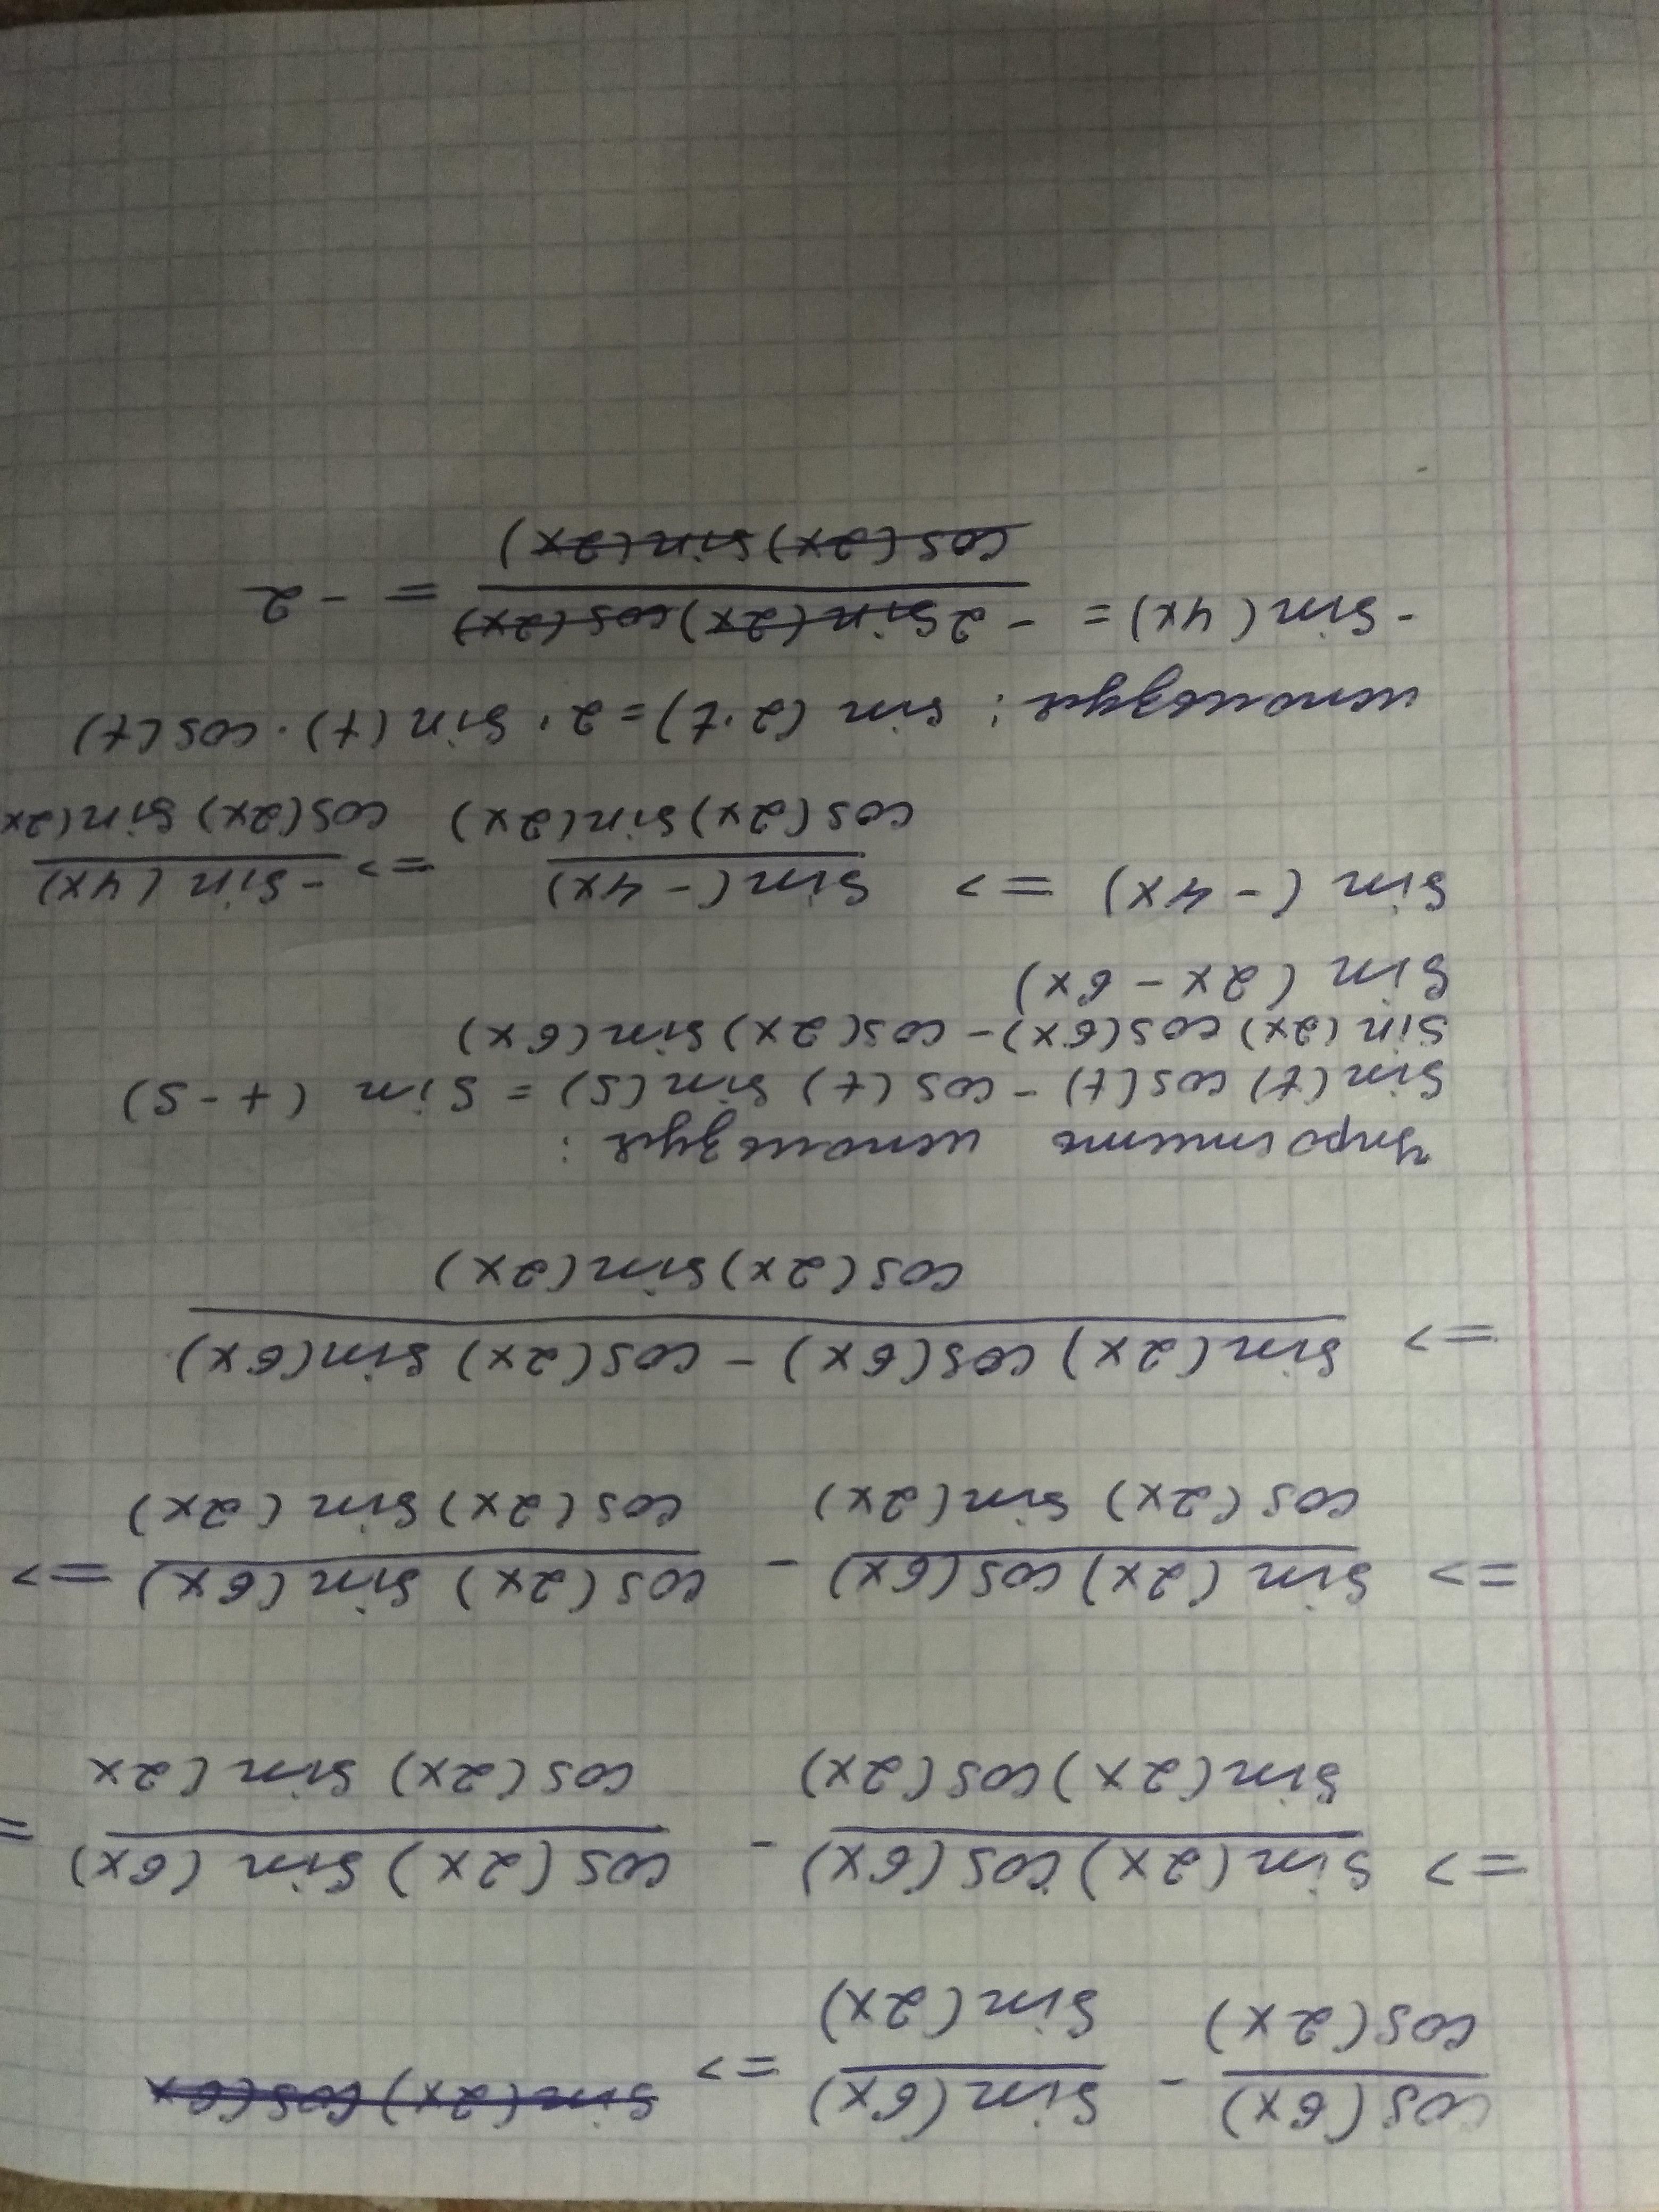 cos(6x)/cos(2x) - sin(6x)/sin(2x) => sin(2x)cos(6x
=> sin(2x)cos(6x)/sin(2x)cos(2x) - cos(2x)sin(6x)/cos(2x)sin(2x =
=> sin(2x)cos(6x)/cos(2x)sin(2x) - cos(2x)sin(6x)/cos(2x)sin(2x) =>
=> sin(2x)cos(6x) - cos(2x)sin(6x)/cos(2x)sin(2x)
Упростить используя:
sin(t)cos(t) - cos(t)sin(s) = sin(t-s)
sin(2x)cos(6x) - cos(2x)sin(6x)
sin(2x - 6x)
sin(-4x) => sin(-4x)/cos(2x)sin(2x) => -sin(4x)/cos(2x)sin(2x
используя: sin(2·t) = 2·sin(t)·cos(t)
-sin(4x) = -2sin(2x)cos(2x)/cos(2x)sin(2x) = -2